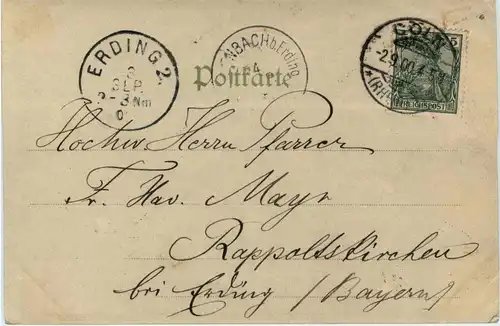 ERDING 2.
3
SEP.
2-3 Nm
0
NBACH b. Erding
4
Postkarte
CÖLN
2.9.00.
(RH
REICHSPOST
5
Hochw. Herrn Pfarrer
Fr. Xav. Mayr
Rappoltskirchen
bei Erding (Bayern)